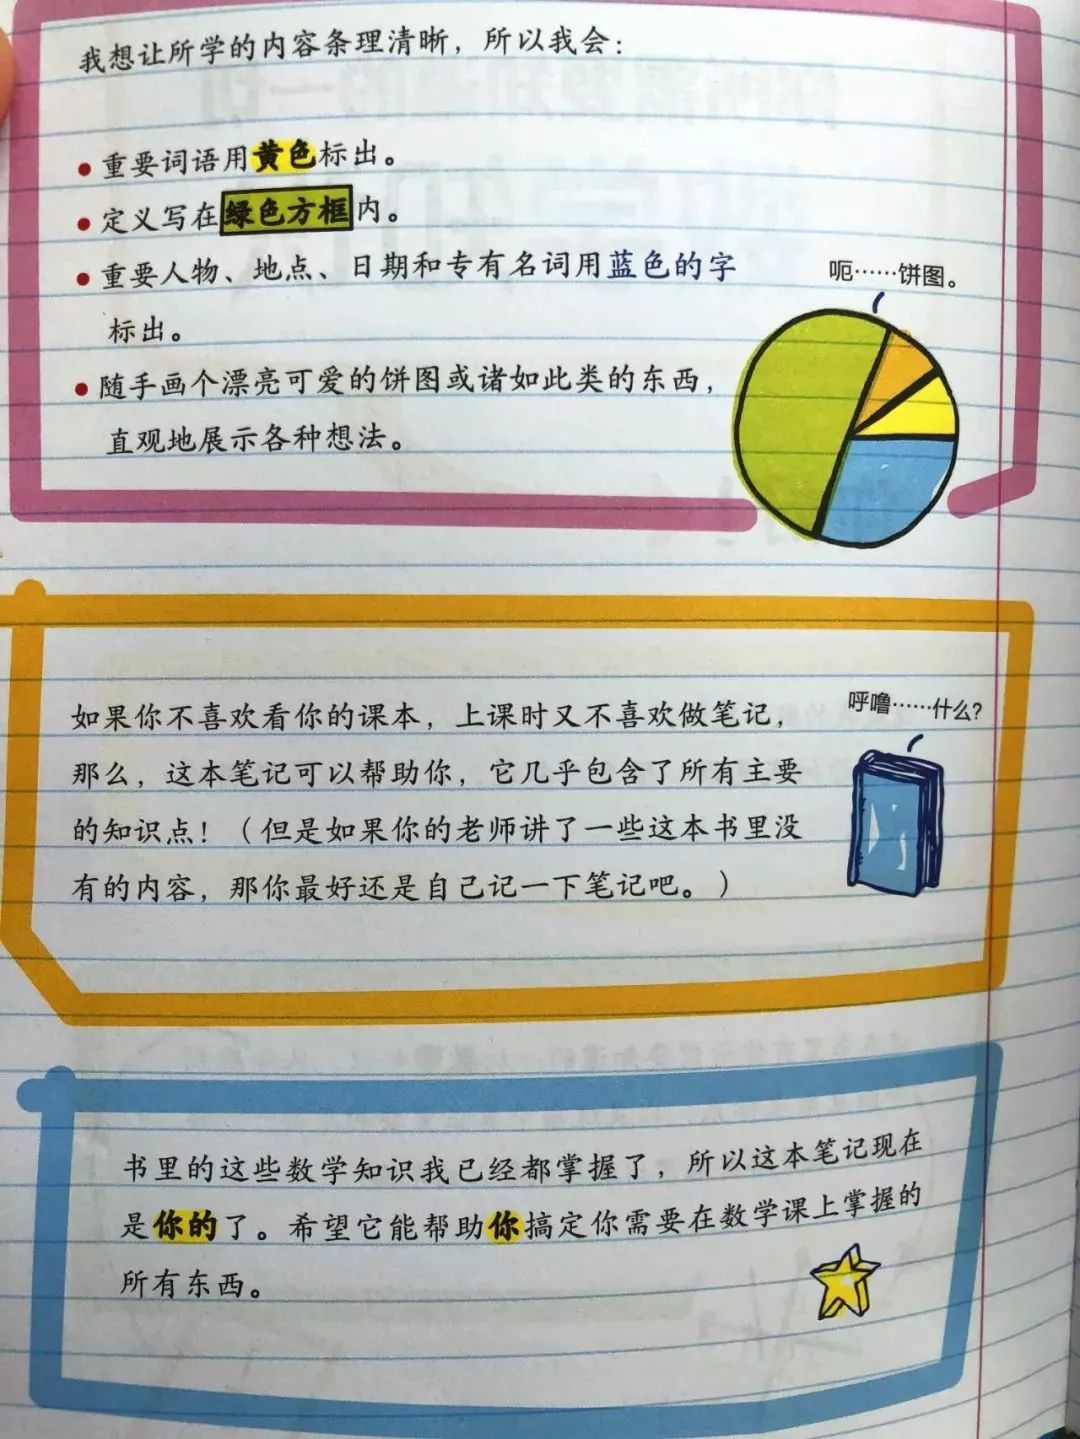 我想让所学的内容条理清晰，所以我会：
• 重要词语用黄色标出。
• 定义写在绿色方框内。
• 重要人物、地点、日期和专有名词用蓝色的字
标出。
呃……饼图。
• 随手画个漂亮可爱的饼图或诸如此类的东西，
直观地展示各种想法。
如果你不喜欢看你的课本，上课时又不喜欢做笔记，
那么，这本笔记可以帮助你，它几乎包含了所有主要
的知识点！（但是如果你的老师讲了一些这本书里没
有的内容，那你最好还是自己记一下笔记吧。）
呼噜……什么?
书里的这些数学知识我已经都掌握了，所以这本笔记现在
是你的了。希望它能帮助你搞定你需要在数学课上掌握的
所有东西。